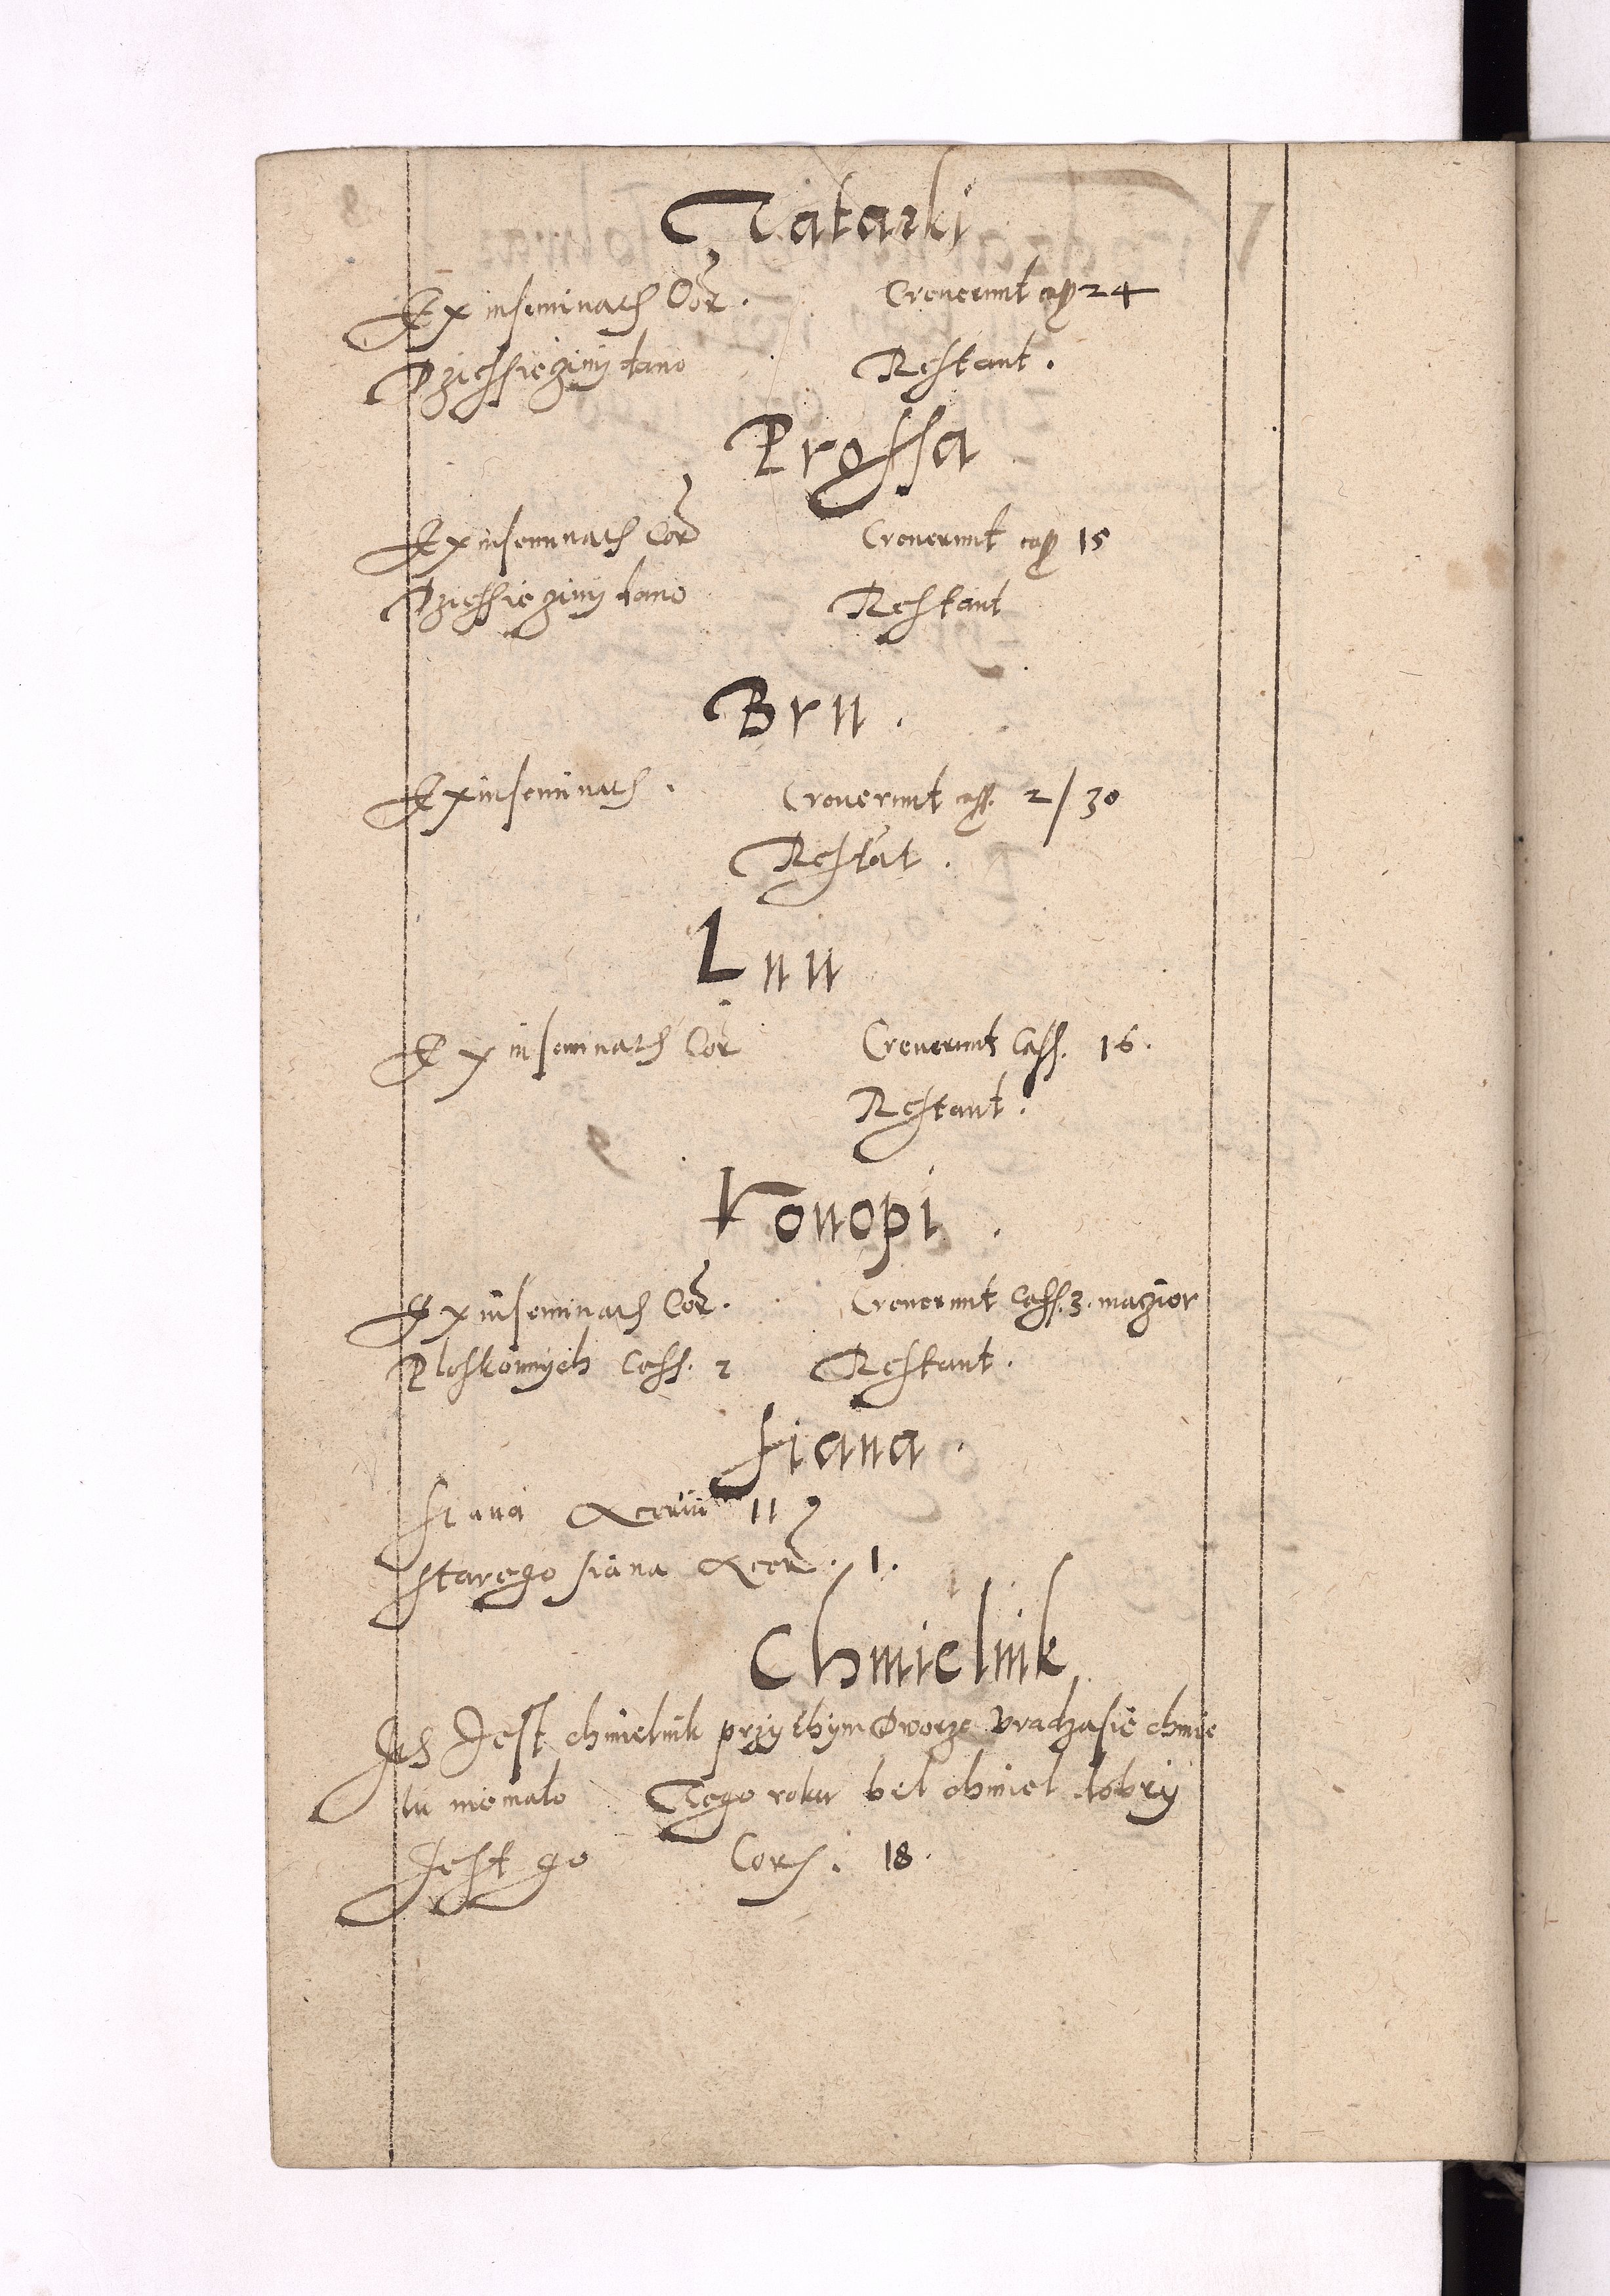 Tatarki
Ex inseminatis Cor. Creverunt cap 24
Dziessieçinÿ dano Restant.
Prossa
Ex inseminatis Cor Creverunt cap 15
Dziessieçinÿ dano Restant
Bru.
Ex inseminatis. Creverunt cass. 2/30
Restāt.
Lnu
Ex inseminatis Cor Creverunt Cass. 16.
Restant.
Konopi.
Ex inseminatis Cor. Creverunt Cass. 3. magior
Ploskonnych Cass. 2 Restant.
Siana.
Siana Acerui 11
Starego siana Acer. 1.
Chmielnik
Jest chmielnik przy thym Dworze Vradza sie chmie
lu niemalo Tego roku bel chmiel dobry
Jest go Cors. 18.